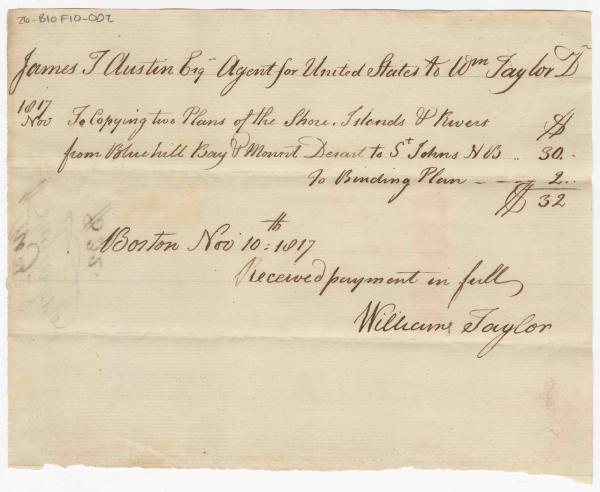 26-B10F10-002
James T Austin Esqr Agent for United States to Wm Taylor Dr
1817
Nov To Copying two Plans of the Shore, Islands & Rivers $
from Bluehill Bay & Mount Desart to St Johns N B .. 30.-
To Binding Plan - - 2..
$ 32
Boston Nov 10th : 1817
Received payment in full
William Taylor